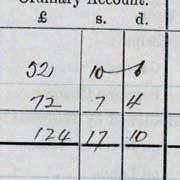 Ordinary Account.
£ s. d.
52 10 6
72 7 4
124 17 10